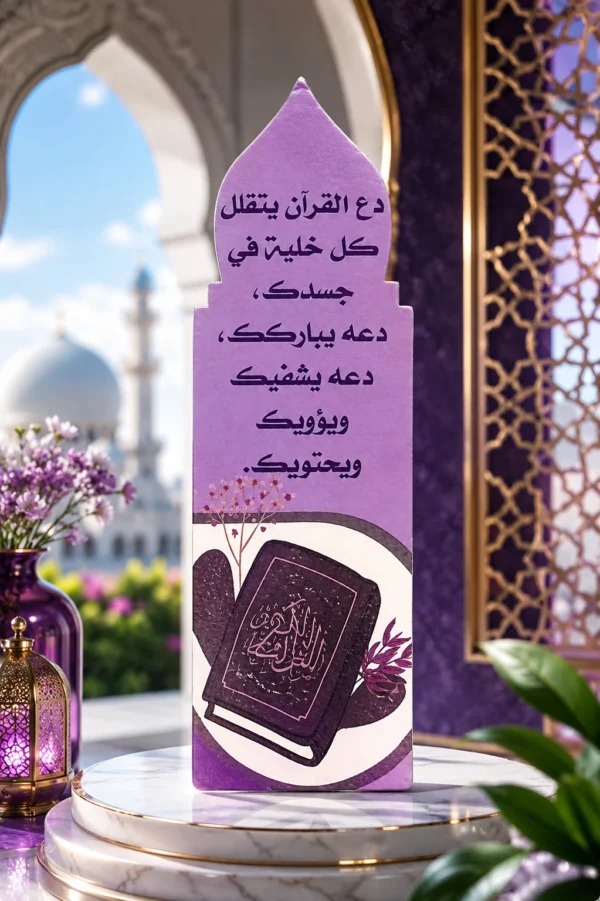 دع القرآن يتقلل
كل خلية في
جسدك،
دعه يباركك،
دعه يشفيك
ويؤويك
ويحتويك.